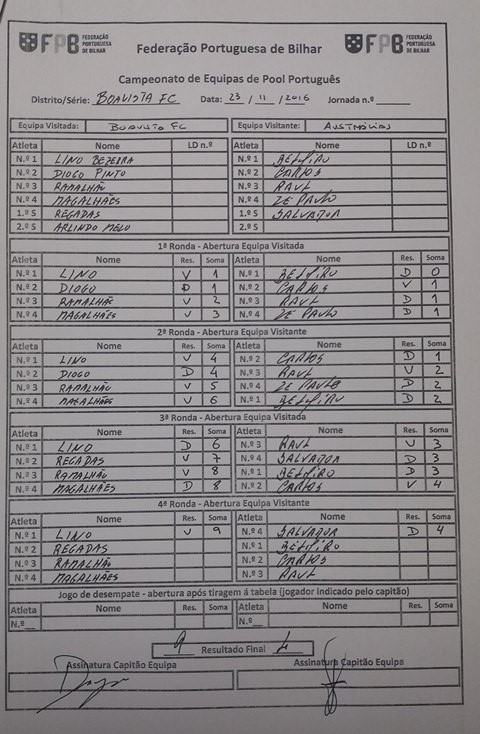 FPB FEDERAÇÃO PORTUGUESA DE BILHAR
Federação Portuguesa de Bilhar
FPB FEDERAÇÃO PORTUGUESA DE BILHAR
Campeonato de Equipas de Pool Português
Distrito/Série: BOAVISTA FC Data: 23 / 11 / 2016 Jornada n.º
Equipa Visitada: BOAVISTA FC Equipa Visitante:
Atleta Nome LD n.º Atleta Nome LD n.º
N.º 1 LINO BEZERRA N.º 1 BELMIRO
N.º 2 DIOGO PINTO N.º 2 CARLOS
N.º 3 RAMALHÃO N.º 3 RAUL
N.º 4 MAGALHÃES N.º 4 ZE PAULO
1.º S REGADAS 1.º S SALVADOR
2.º S ARLINDO MELO 2.º S
1ª Ronda - Abertura Equipa Visitada
Atleta Nome Res. Soma Atleta Nome Res. Soma
N.º 1 LINO V 1 N.º 1 BELMIRO D 0
N.º 2 DIOGO D 1 N.º 2 CARLOS V 1
N.º 3 RAMALHÃO V 2 N.º 3 RAUL D 1
N.º 4 MAGALHÃES V 3 N.º 4 ZE PAULO D 1
2ª Ronda - Abertura Equipa Visitante
Atleta Nome Res. Soma Atleta Nome Res. Soma
N.º 1 LINO V 4 N.º 2 CARLOS D 1
N.º 2 DIOGO D 4 N.º 3 RAUL V 2
N.º 3 RAMALHÃO V 5 N.º 4 ZE PAULO D 2
N.º 4 MAGALHÃES V 6 N.º 1 BELMIRO D 2
3ª Ronda - Abertura Equipa Visitada
Atleta Nome Res. Soma Atleta Nome Res. Soma
N.º 1 LINO D 6 N.º 3 RAUL V 3
N.º 2 REGADAS V 7 N.º 4 SALVADOR D 3
N.º 3 RAMALHÃO V 8 N.º 1 BELMIRO D 3
N.º 4 MAGALHÃES D 8 N.º 2 CARLOS V 4
4ª Ronda - Abertura Equipa Visitante
Atleta Nome Res. Soma Atleta Nome Res. Soma
N.º 1 LINO V 9 N.º 4 SALVADOR D 4
N.º 2 REGADAS N.º 1 BELMIRO
N.º 3 RAMALHÃO N.º 2 CARLOS
N.º 4 MAGALHÃES N.º 3 RAUL
Jogo de desempate - abertura após tiragem á tabela (jogador indicado pelo capitão)
Atleta Nome Res. Soma Atleta Nome Res. Soma
N.º N.º
9 Resultado Final 4
Assinatura Capitão Equipa Assinatura Capitão Equipa